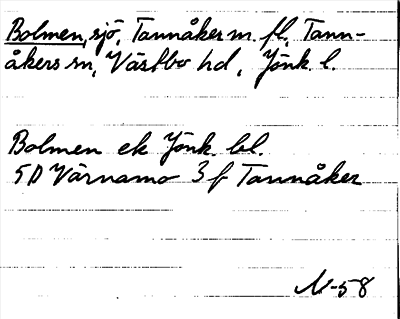 Bolmen, sjö, Tannåker m. fl., Tann-
åkers sn, Västbo hd, Jönk. l.
Bolmen ek Jönk. bl.
5D Värnamo 3f Tannåker
N-58